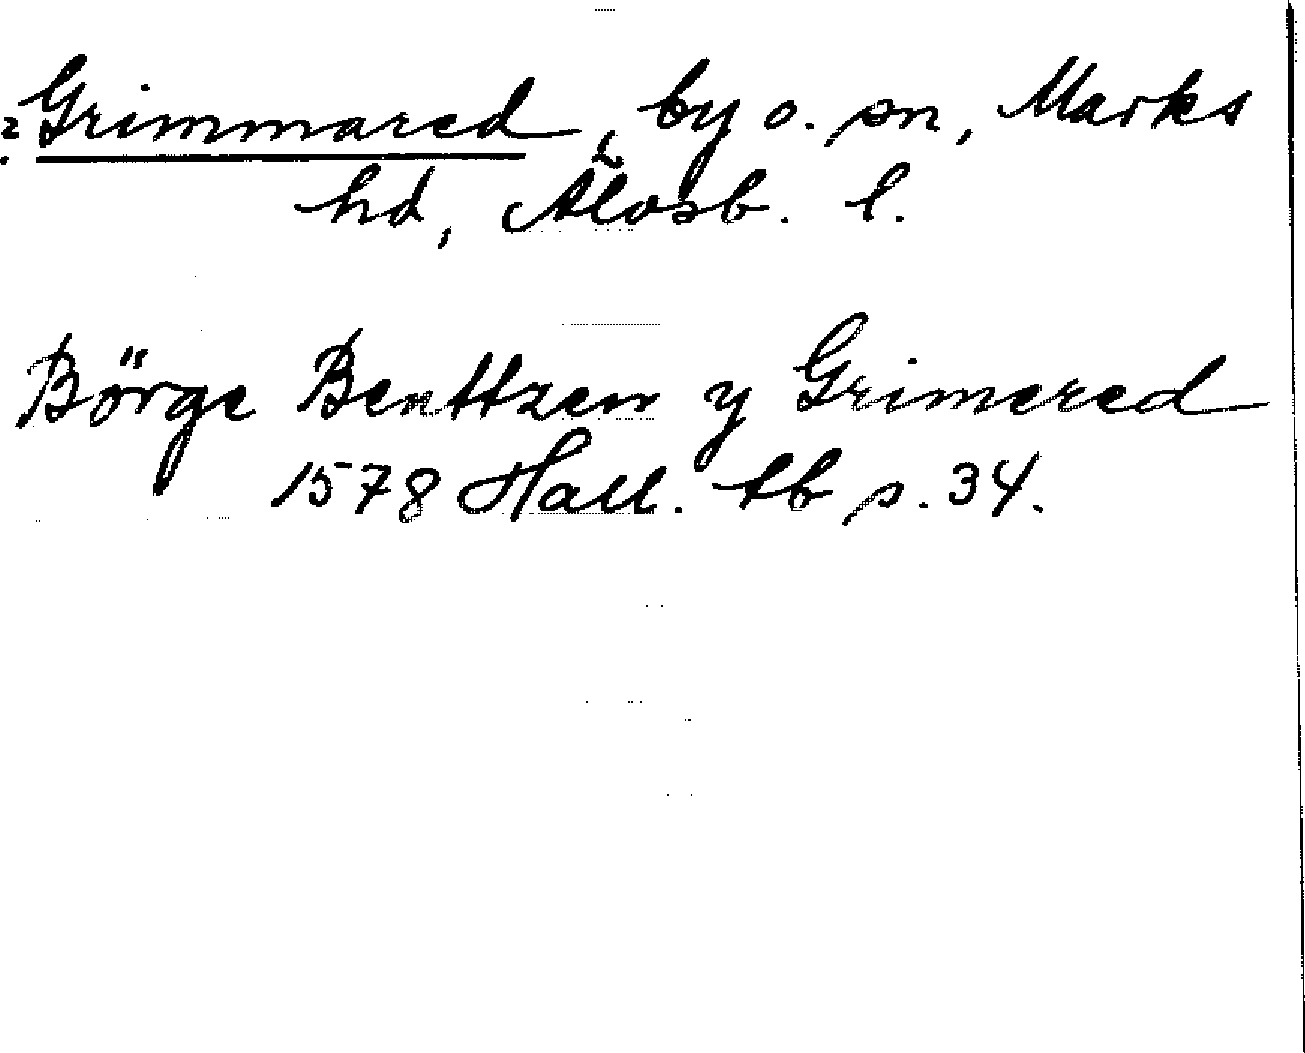 ? Grimmared, by o. sn, Marks
hd, Älvsb. l.
Börge Benttzen y Grimered
1578 Hall. tb s. 34.